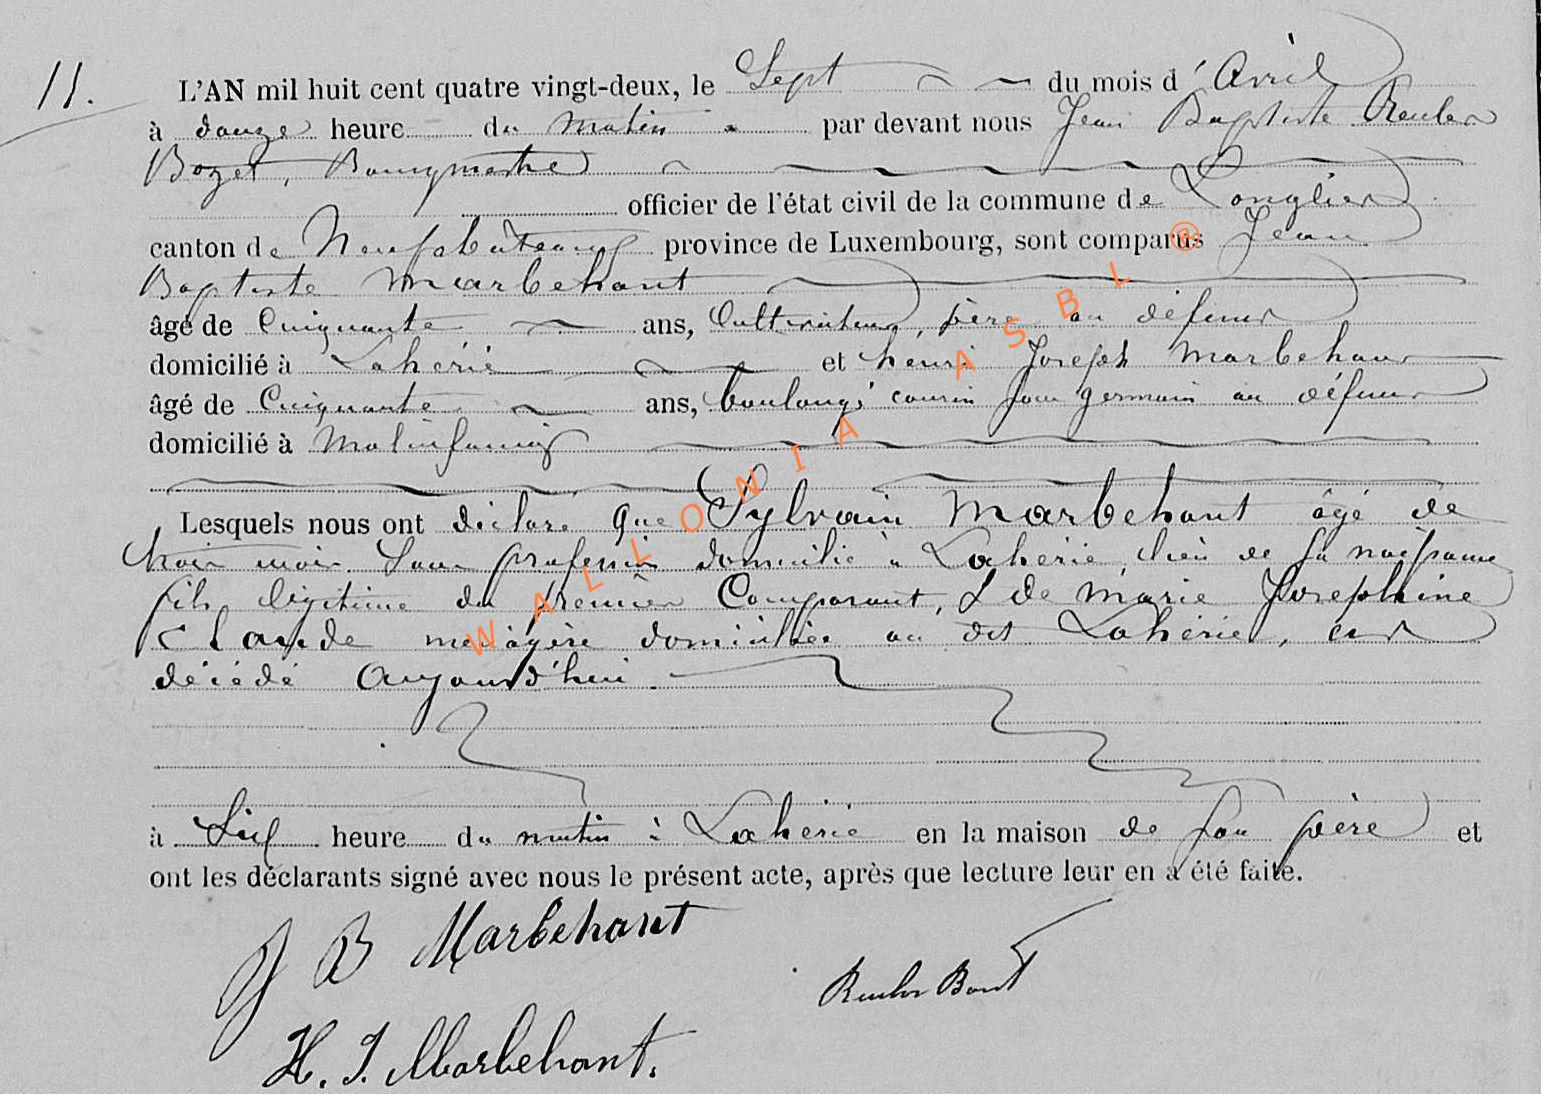 11.
L'AN mil huit cent quatre vingt-deux, le Sept du mois d'Avril
à douze heure du Matin par devant nous Jean Baptiste Reuler
Bozet, Bourgmestre
officier de l'état civil de la commune de Longlier
canton de Neufchâteau province de Luxembourg, sont comparus Jean
Baptiste Marbehant
âgé de Cinquante ans, Cultivateur, père au défunt
domicilié à Lahérie et henri Joseph Marbehant
âgé de Cinquante ans, boulangé cousin sous germain au défunt
domicilié à Molinfaing
Lesquels nous ont déclaré que Sylvain Marbehant âgé de
trois mois Sans profession domicilié à Lahérie, lieu de sa naissance
fils légitime du premier Comparant, & de Marie Josephine
Claude menagère domiciliée au dit Lahérie, est
décédé Aujourd'hui
à Six heure du matin à Lahérie en la maison de son père et
ont les déclarants signé avec nous le présent acte, après que lecture leur en a été faite.
J B Marbehant
H. J. Marbehant.
WALLONIA ASBL ®